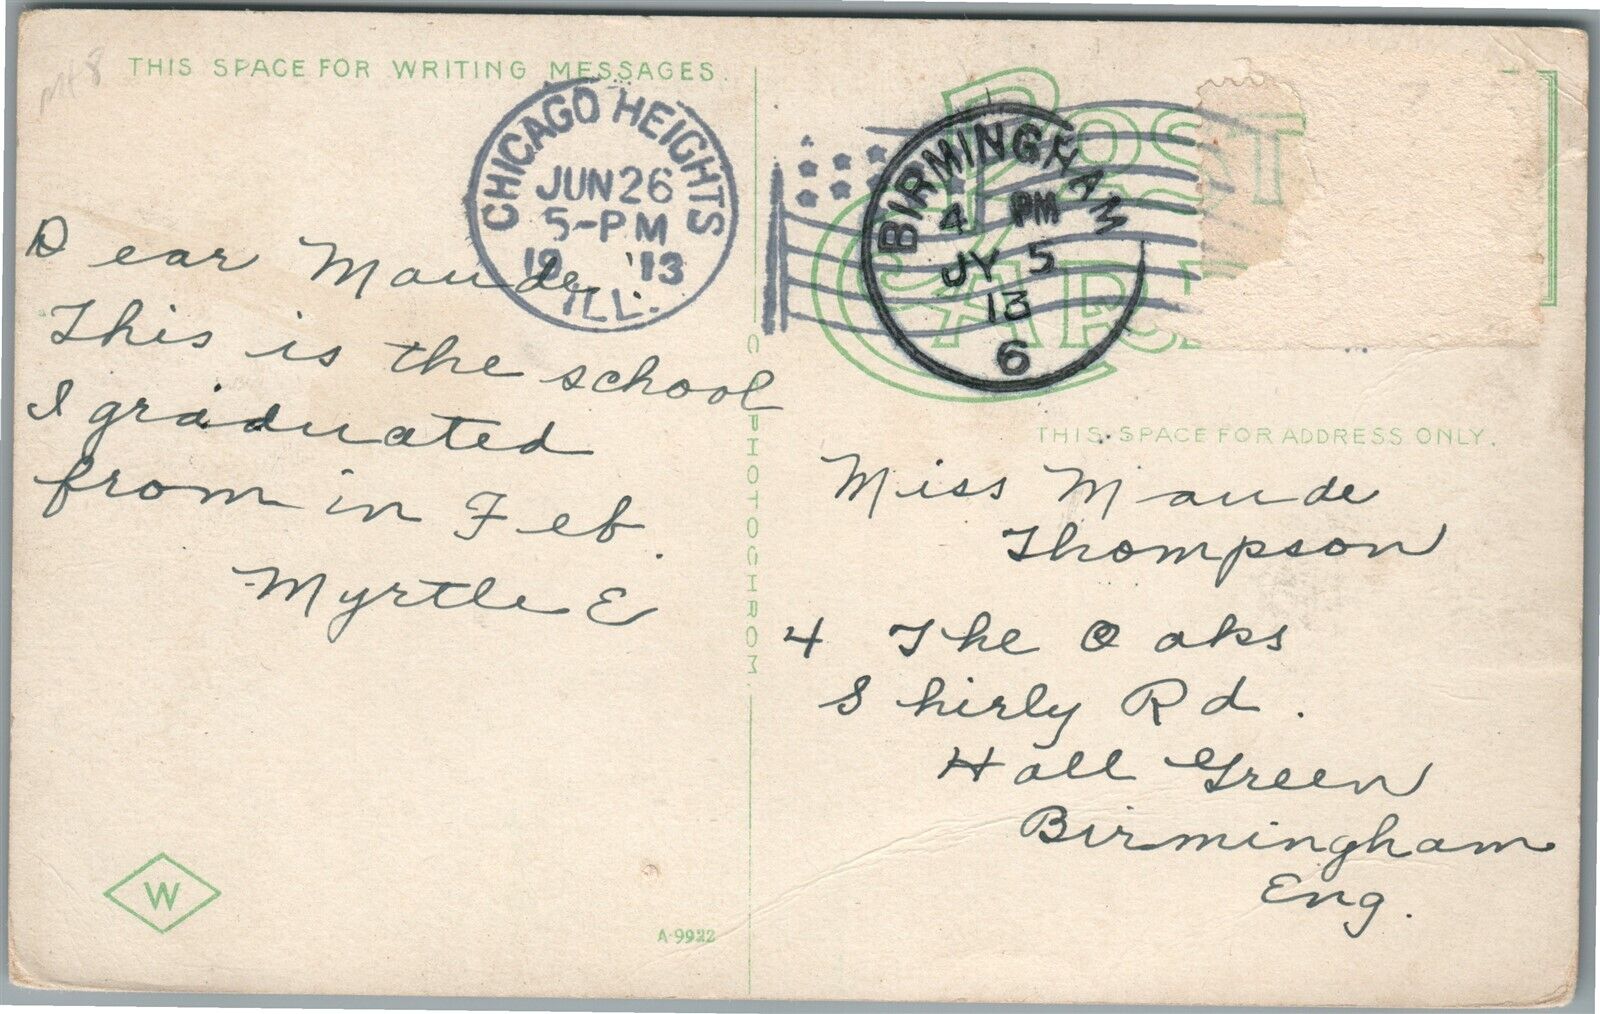 THIS SPACE FOR WRITING MESSAGES.
CHICAGO HEIGHTS
JUN 26
5-PM
19 '13
ILL.
Dear Maude
This is the school
I graduated
from in Feb.
Myrtle E
W
A-9922
C PHOTOCHROM.
POST CARD
BIRMINGHAM
4 PM
JY 5
13
6
THIS SPACE FOR ADDRESS ONLY.
Miss Maude
Thompson
4 The Oaks
Shirly Rd.
Hall Green
Birmingham
Eng.